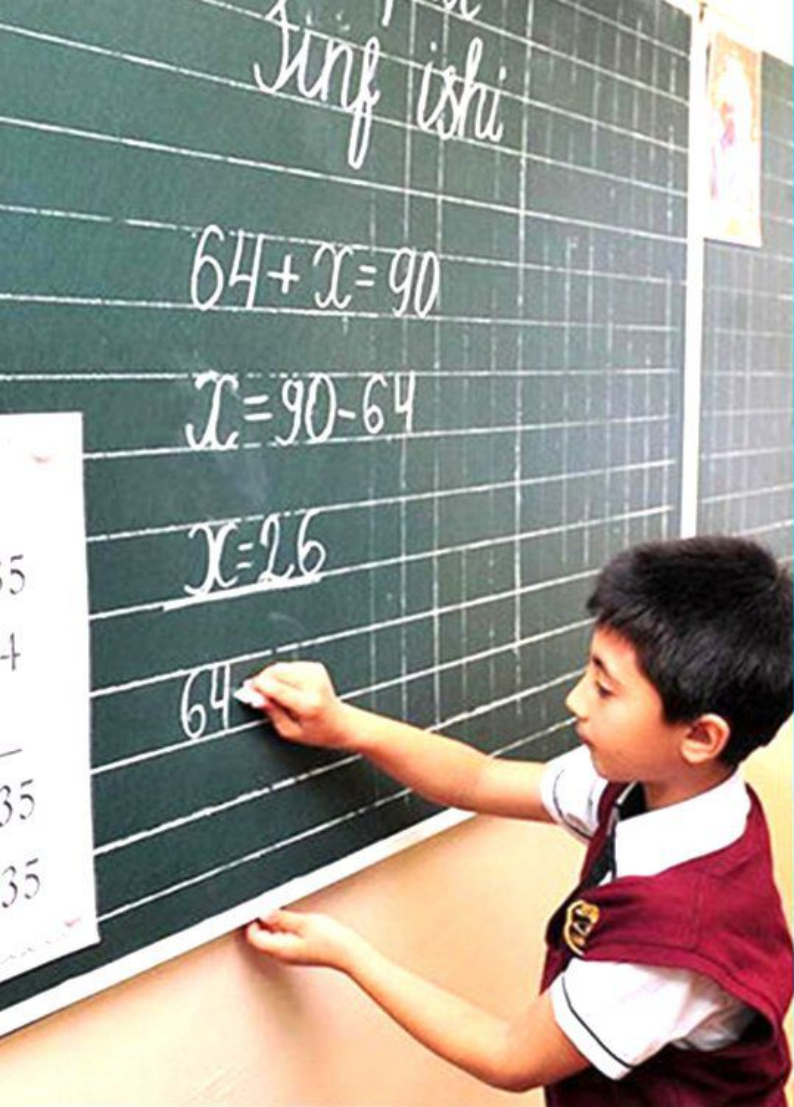 Sinf ishi
64+x=90
x=90-64
x=26
64
35
4
35
35